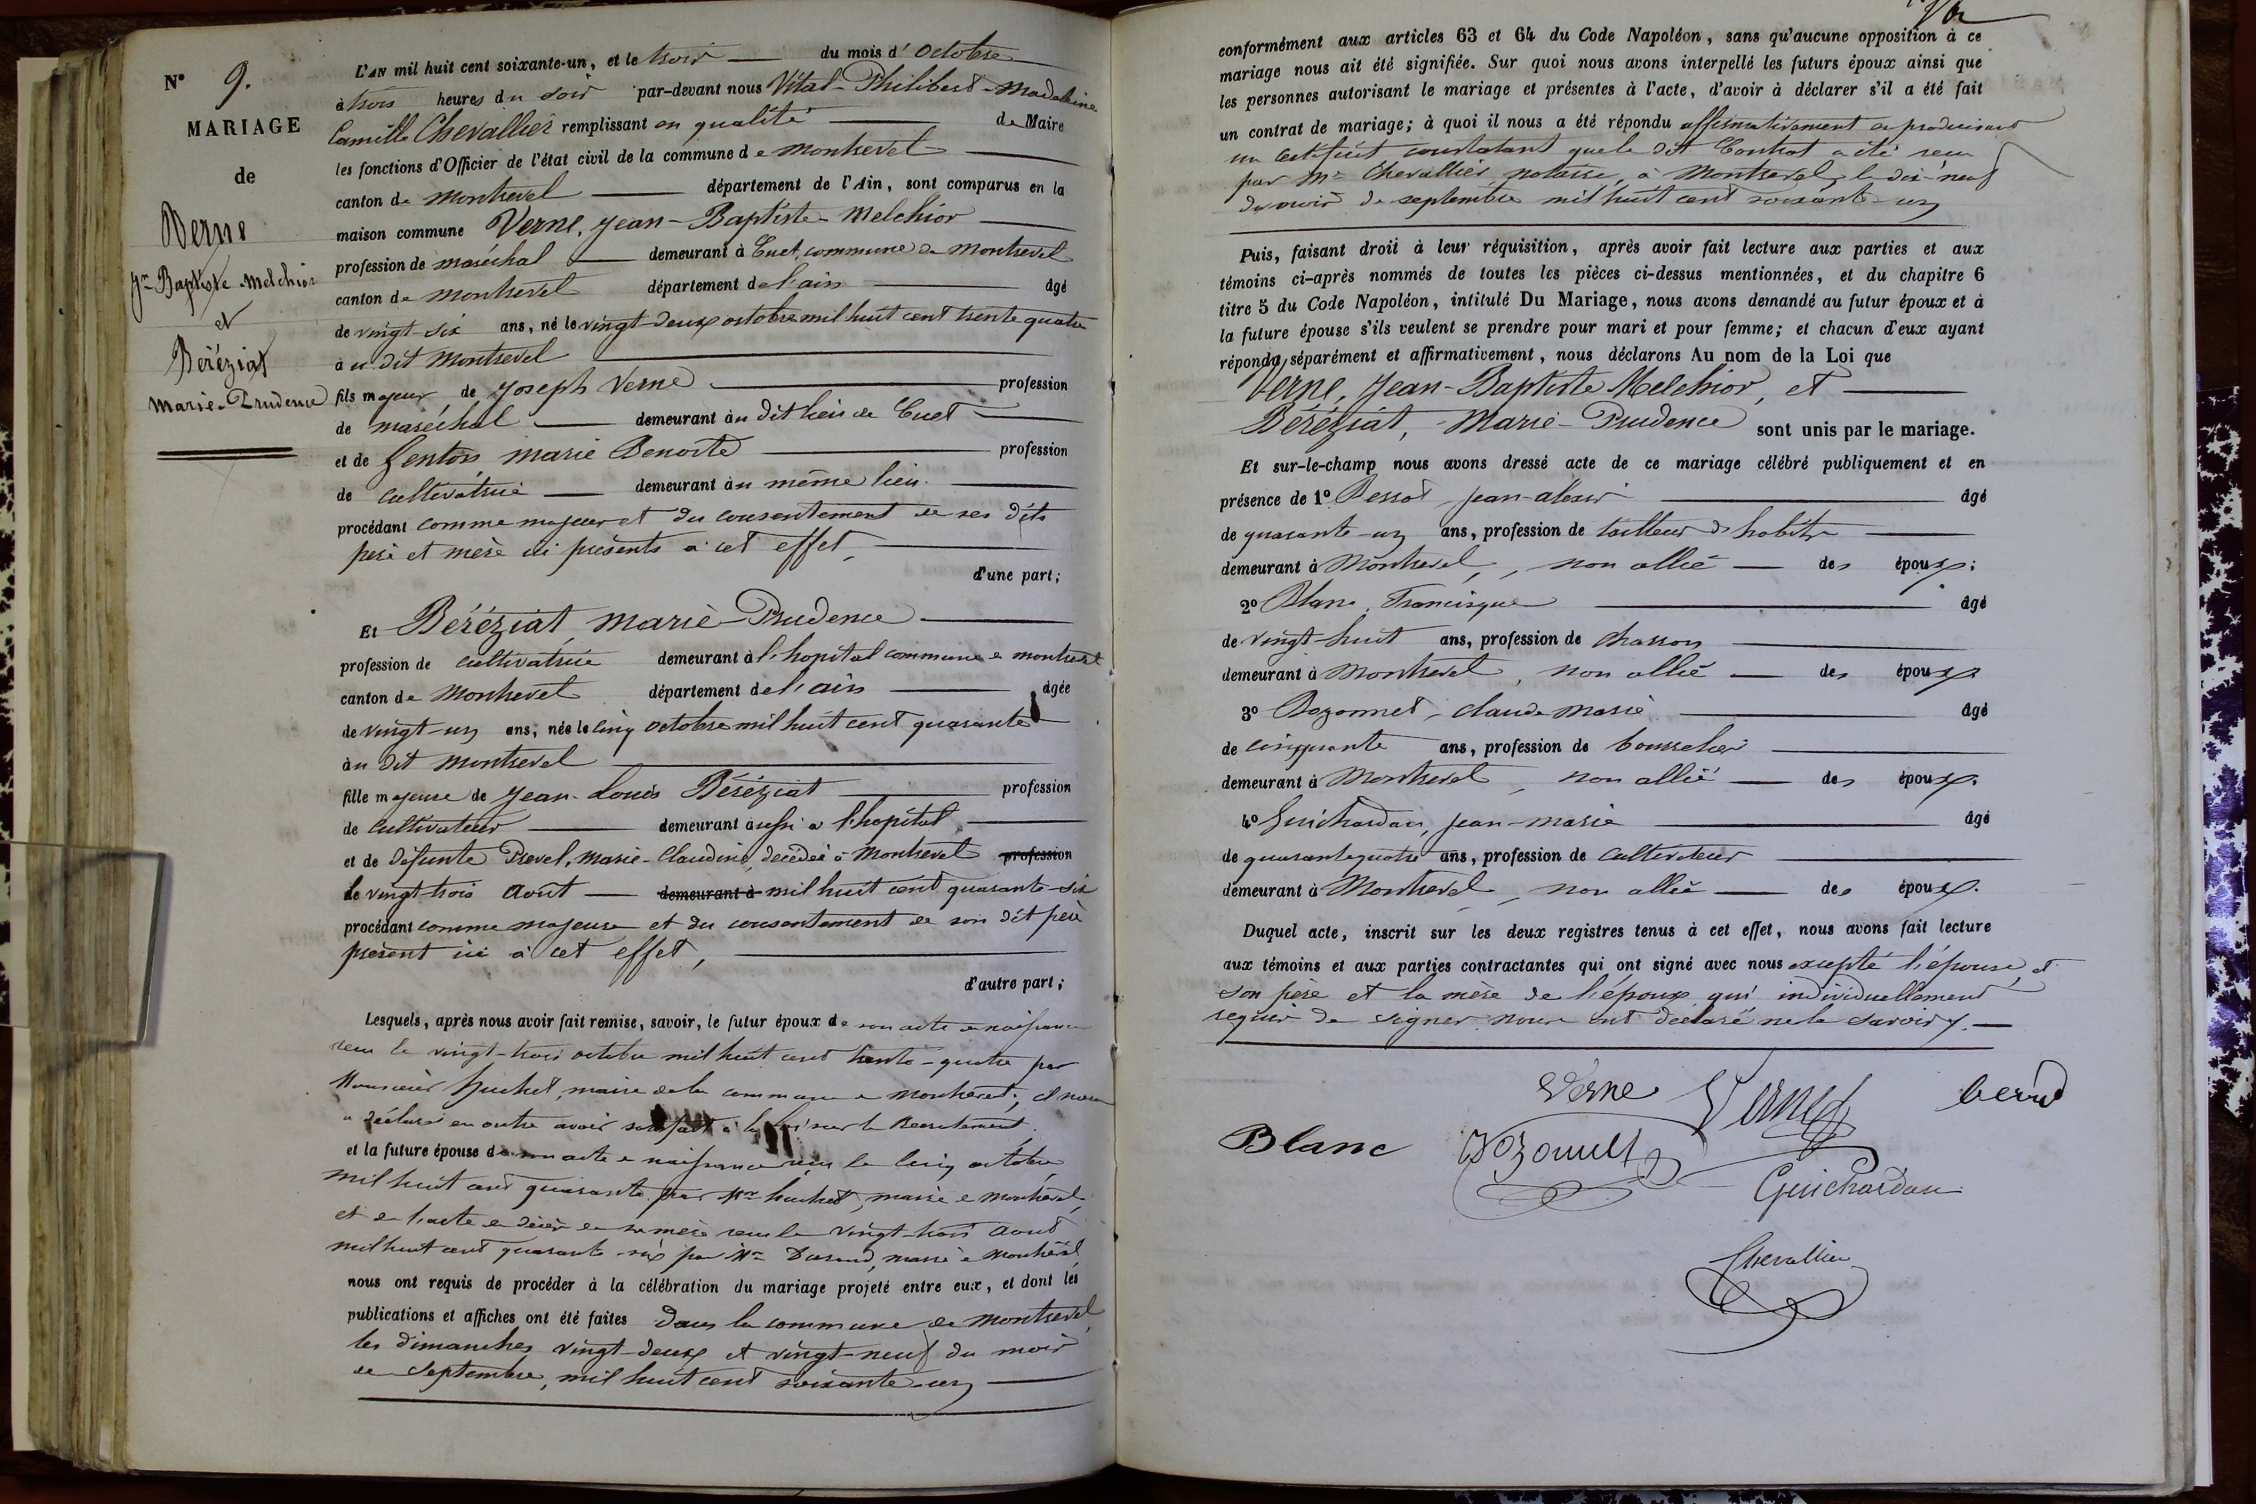 N° 9.
MARIAGE
de
Verne
Jn Baptiste Melchior
et
Béréziat
Marie-Prudence
L'AN mil huit cent soixante-un, et le trois du mois d'Octobre
à trois heures du soir par-devant nous Vital-Philibert-Madeleine
Camille Chevallier remplissant en qualité de Maire
les fonctions d'Officier de l'état civil de la commune de Montrevel
canton de Montrevel département de l'Ain, sont comparus en la
maison commune Verne, Jean-Baptiste-Melchior
profession de maréchal demeurant à Cuet, commune de Montrevel
canton de Montrevel département de l'ain âgé
de vingt-six ans, né le vingt-deux octobre mil huit cent trente quatre
au dit Montrevel
fils majeur de Joseph Verne profession
de maréchal demeurant au dit lieu de Cuet
et de Genton, marie Benoite profession
de cultivatrice demeurant au même lieu
procédant comme majeur et du consentement de ses dits
père et mère ici présents à cet effet,
d'une part;
Et Béréziat marie-Prudence
profession de cultivatrice demeurant à l'hopital commune de montrevel
canton de Montrevel département de l'ain âgée
de vingt-un ans, née le cinq octobre mil huit cent quarante
au dit montrevel
fille majeure de Jean-Louis Béréziat profession
de cultivateur demeurant aussi à l'hopital
et de défunte Prevel, Marie-Claudine, décédée à Montrevel profession
le vingt-trois août demeurant à mil huit cent quarante-six
procédant comme majeure et du consentement de son dit père
présent ici à cet effet,
d'autre part;
Lesquels, après nous avoir fait remise, savoir, le futur époux de son acte de naissance
reçu le vingt-trois octobre mil huit cent trente-quatre par
Monsieur huchet, maire de la commune de Montrevel; il nous
a déclaré en outre avoir satisfait à la loi sur le Recrutement
et la future épouse de son acte de naissance reçu le cinq octobre
mil huit cent quarante par Mr huchet, maire de montrevel,
et de l'acte de décès de sa mère reçu le vingt-trois août
mil huit cent quarante-six par Mr Durand, maire de Montrevel
nous ont requis de procéder à la célébration du mariage projeté entre eux, et dont les
publications et affiches ont été faites dans la commune de Montrevel
les dimanches vingt-deux et vingt-neuf du mois
de Septembre, mil huit cent soixante-un
conformément aux articles 63 et 64 du Code Napoléon, sans qu'aucune opposition à ce
mariage nous ait été signifiée. Sur quoi nous avons interpellé les futurs époux ainsi que
les personnes autorisant le mariage et présentes à l'acte, d'avoir à déclarer s'il a été fait
un contrat de mariage; à quoi il nous a été répondu affirmativement en produisant
un certificat constatant que le dit Contrat a été reçu
par Me Chevallier, notaire, à Montrevel, le dix-neuf
du mois de septembre mil huit cent soixante-un
Puis, faisant droit à leur réquisition, après avoir fait lecture aux parties et aux
témoins ci-après nommés de toutes les pièces ci-dessus mentionnées, et du chapitre 6
titre 5 du Code Napoléon, intitulé Du Mariage, nous avons demandé au futur époux et à
la future épouse s'ils veulent se prendre pour mari et pour femme; et chacun d'eux ayant
répondu séparément et affirmativement, nous déclarons Au nom de la Loi que
Verne, Jean-Baptiste Melchior, et
Béréziat, Marie-Prudence sont unis par le mariage.
Et sur-le-champ nous avons dressé acte de ce mariage célébré publiquement et en
présence de 1° jean-alexis âgé
de quarante-un ans, profession de tailleur d'habits
demeurant à Montrevel, non allié des époux;
2° Blanc, Francisque âgé
de vingt-huit ans, profession de charron
demeurant à Montrevel, non allié des époux
3° Bozonnet, claude marie âgé
de cinquante ans, profession de bourrelier
demeurant à Montrevel, non allié des époux.
4° Guichardan, jean-marie âgé
de quarante quatre ans, profession de cultivateur
demeurant à Montrevel, non allié des époux.
Duquel acte, inscrit sur les deux registres tenus à cet effet, nous avons fait lecture
aux témoins et aux parties contractantes qui ont signé avec nous excepté l'épouse, et
son père et la mère de l'époux qui individuellement
requis de signer nous ont déclaré ne le savoir
Verne Verne
Blanc Bozonnet
Guichardan
Chevallier